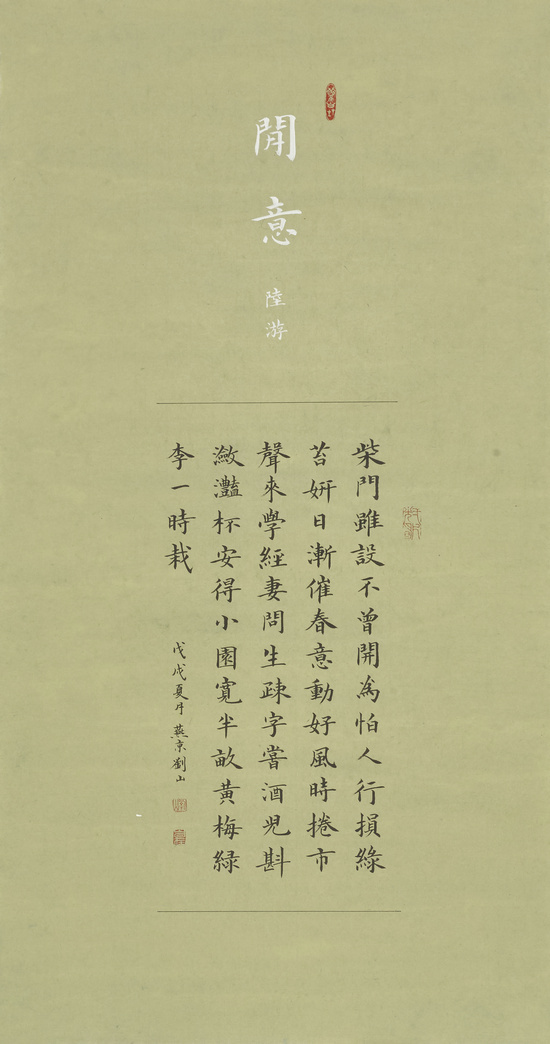 閒意
陸游
柴門雖設不曾開為怕人行損綠
苔妍日漸催春意動好風時捲市
聲來學經妻問生疎字嘗酒兒斟
瀲灩杯安得小園寬半畝黃梅緑
李一時栽
戊戌夏月燕京劉山